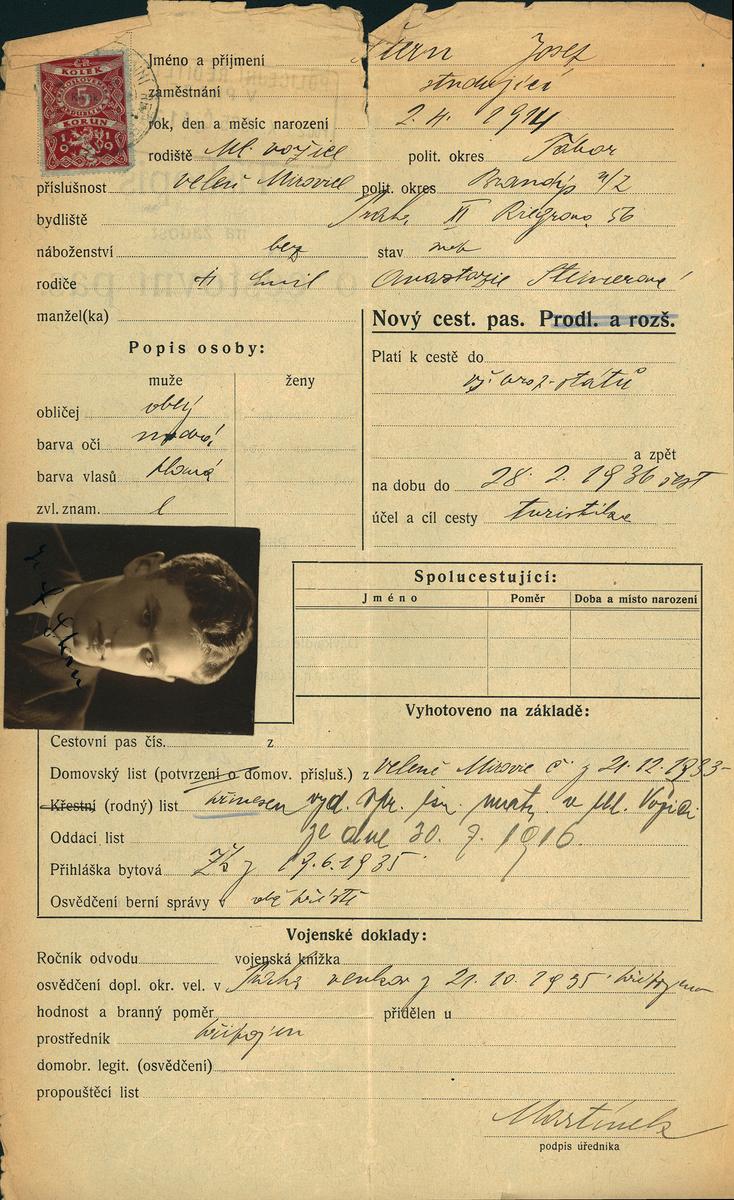 KOLEK
5
KORUN
1919
Jméno a příjmení Štern Josef
zaměstnání studující
rok, den a měsíc narození 2. 4. 1914
rodiště Ml. Vožice polit. okres Tábor
příslušnost Veleň Mirovice polit. okres Brandýs n/L
bydliště Praha XII Riegrova 56
náboženství bez stav
rodiče † Emil Anastazie Steinerová
manžel(ka)
Nový cest. pas. Prodl. a rozš.
Popis osoby:
muže ženy
obličej oblý
barva očí modrá
barva vlasů
zvl. znam.
Platí k cestě do
a zpět
na dobu do 28. 2. 1936
účel a cíl cesty turistika
Spolucestující:
Jméno Poměr Doba a místo narození
Vyhotoveno na základě:
Cestovní pas čís. z
Domovský list (potvrzení o domov. přísluš.) z Veleně Mirovic č z 21. 12. 1933
Křestní (rodný) list vyd. v Ml. Vožici
ze dne 30. 7. 1916.
Oddací list
Přihláška bytová z 19. 6. 1935
Osvědčení berní správy v
Vojenské doklady:
Ročník odvodu vojenská knížka
osvědčení dopl. okr. vel. v Praha venkov z 21. 10. 1935
hodnost a branný poměr přidělen u
prostředník připojen
domobr. legit. (osvědčení)
propouštěcí list
Martínek
podpis úředníka